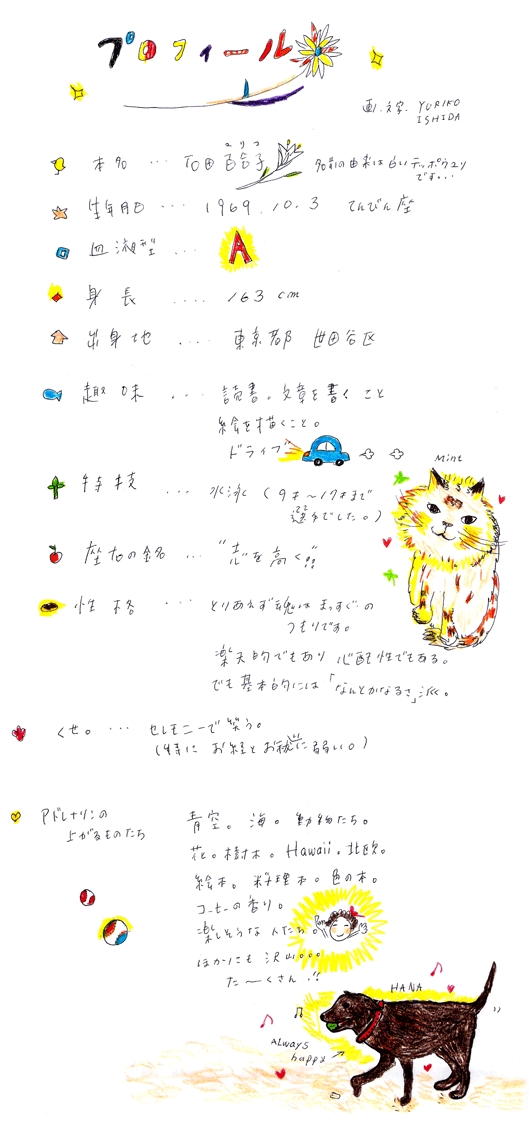 プロフィール
画・文字 YURIKO
ISHIDA
ゆりこ
本名 … 石田百合子 名前の由来は白いテッポウユリ
です…
生年月日 … 1969.10.3 てんびん座
血液型 … A
身長 .... 163cm
出身地 .... 東京都 世田谷区
趣味 ... 読書。文章を書くこと
絵を描くこと。
ドライブ
Mint
特技 ... 水泳 (9才〜17才まで
選手でした。)
座右の銘 ... "志"を高く!!
性格 ... とりあえず魂はまっすぐの
つもりです。
楽天的でもあり 心配性でもある。
でも基本的には「なんとかなるさ」派。
くせ。... セレモニーで笑う。
(特に お経とお祓いに弱い。)
アドレナリンの
上がるものたち
青空。海。動物たち。
花。樹木。Hawaii。北欧。
絵本。料理本。色の本。
コーヒーの香り。
楽しそうな人たち。
ほかにも 沢山。。。
た〜くさん!!
HANA
ALWAYS
happy